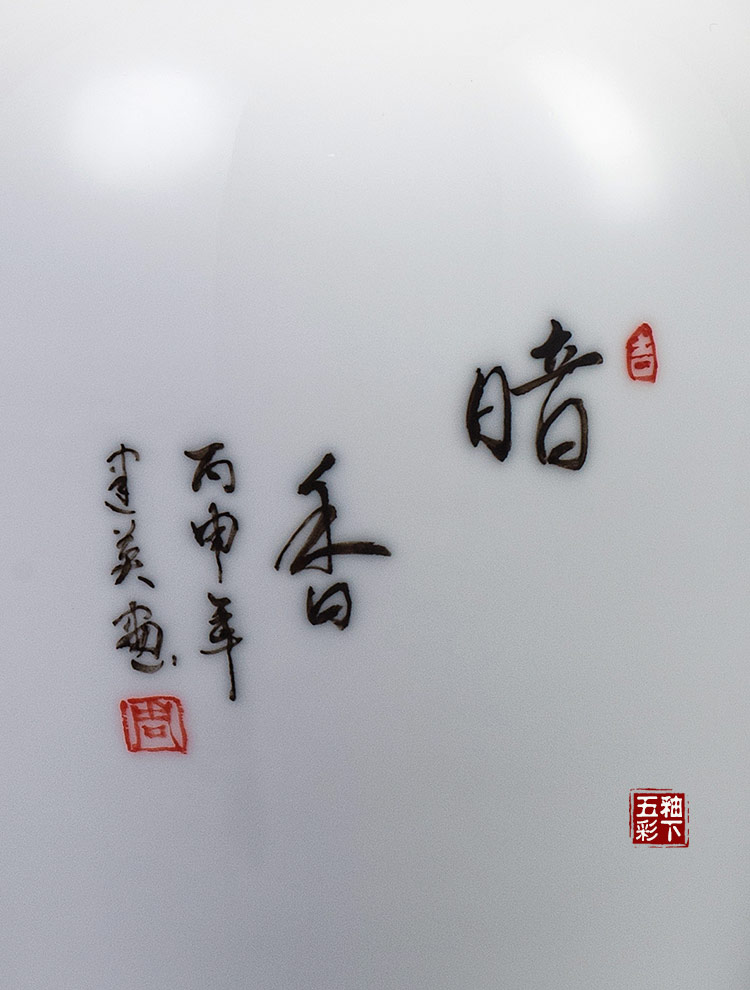 吉
暗
香
丙申年
建英画
周
釉下
五彩